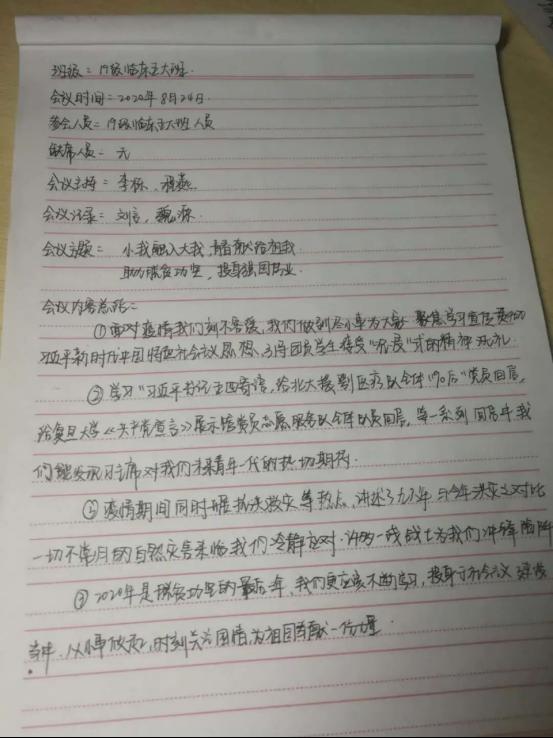 班级：19级临床五大班.
会议时间：2020年8月24日.
参会人员：19级临床五大班人员
缺席人员：无
会议主持：李栋、程燕.
会议记录：刘言,魏源.
会议主题：小我融入大我,青春献给祖国
助力脱贫攻坚,投身强国伟业.
会议内容总结：
①面对疫情我们刻不容缓,我们做到尽小事为大家 聚焦学习宣传贯彻
习近平新时代中国特色社会主义思想,引导团员学生接受“ 式的精神洗礼.
②学习“习近平书记 四封信,给北大援鄂医疗队全体“90后”党员回信,
给复旦大学《共产党宣言》展示馆党员志愿服务队全体队员回信,等一系列回信中我
们能发现习主席对我们未来青年一代的热切期盼.
③疫情期间同时开展抗洪救灾等热点,讲述了九八年与今年洪灾之对比
一切不常见的自然灾害来临我们冷静应对.许多一线战士为我们冲锋陷阵
④2020年是脱贫攻坚的最后一年,我们更应该不断学习,投身于社会主义建设
当中.以小事做起,时刻关注国情为祖国贡献一份力量.